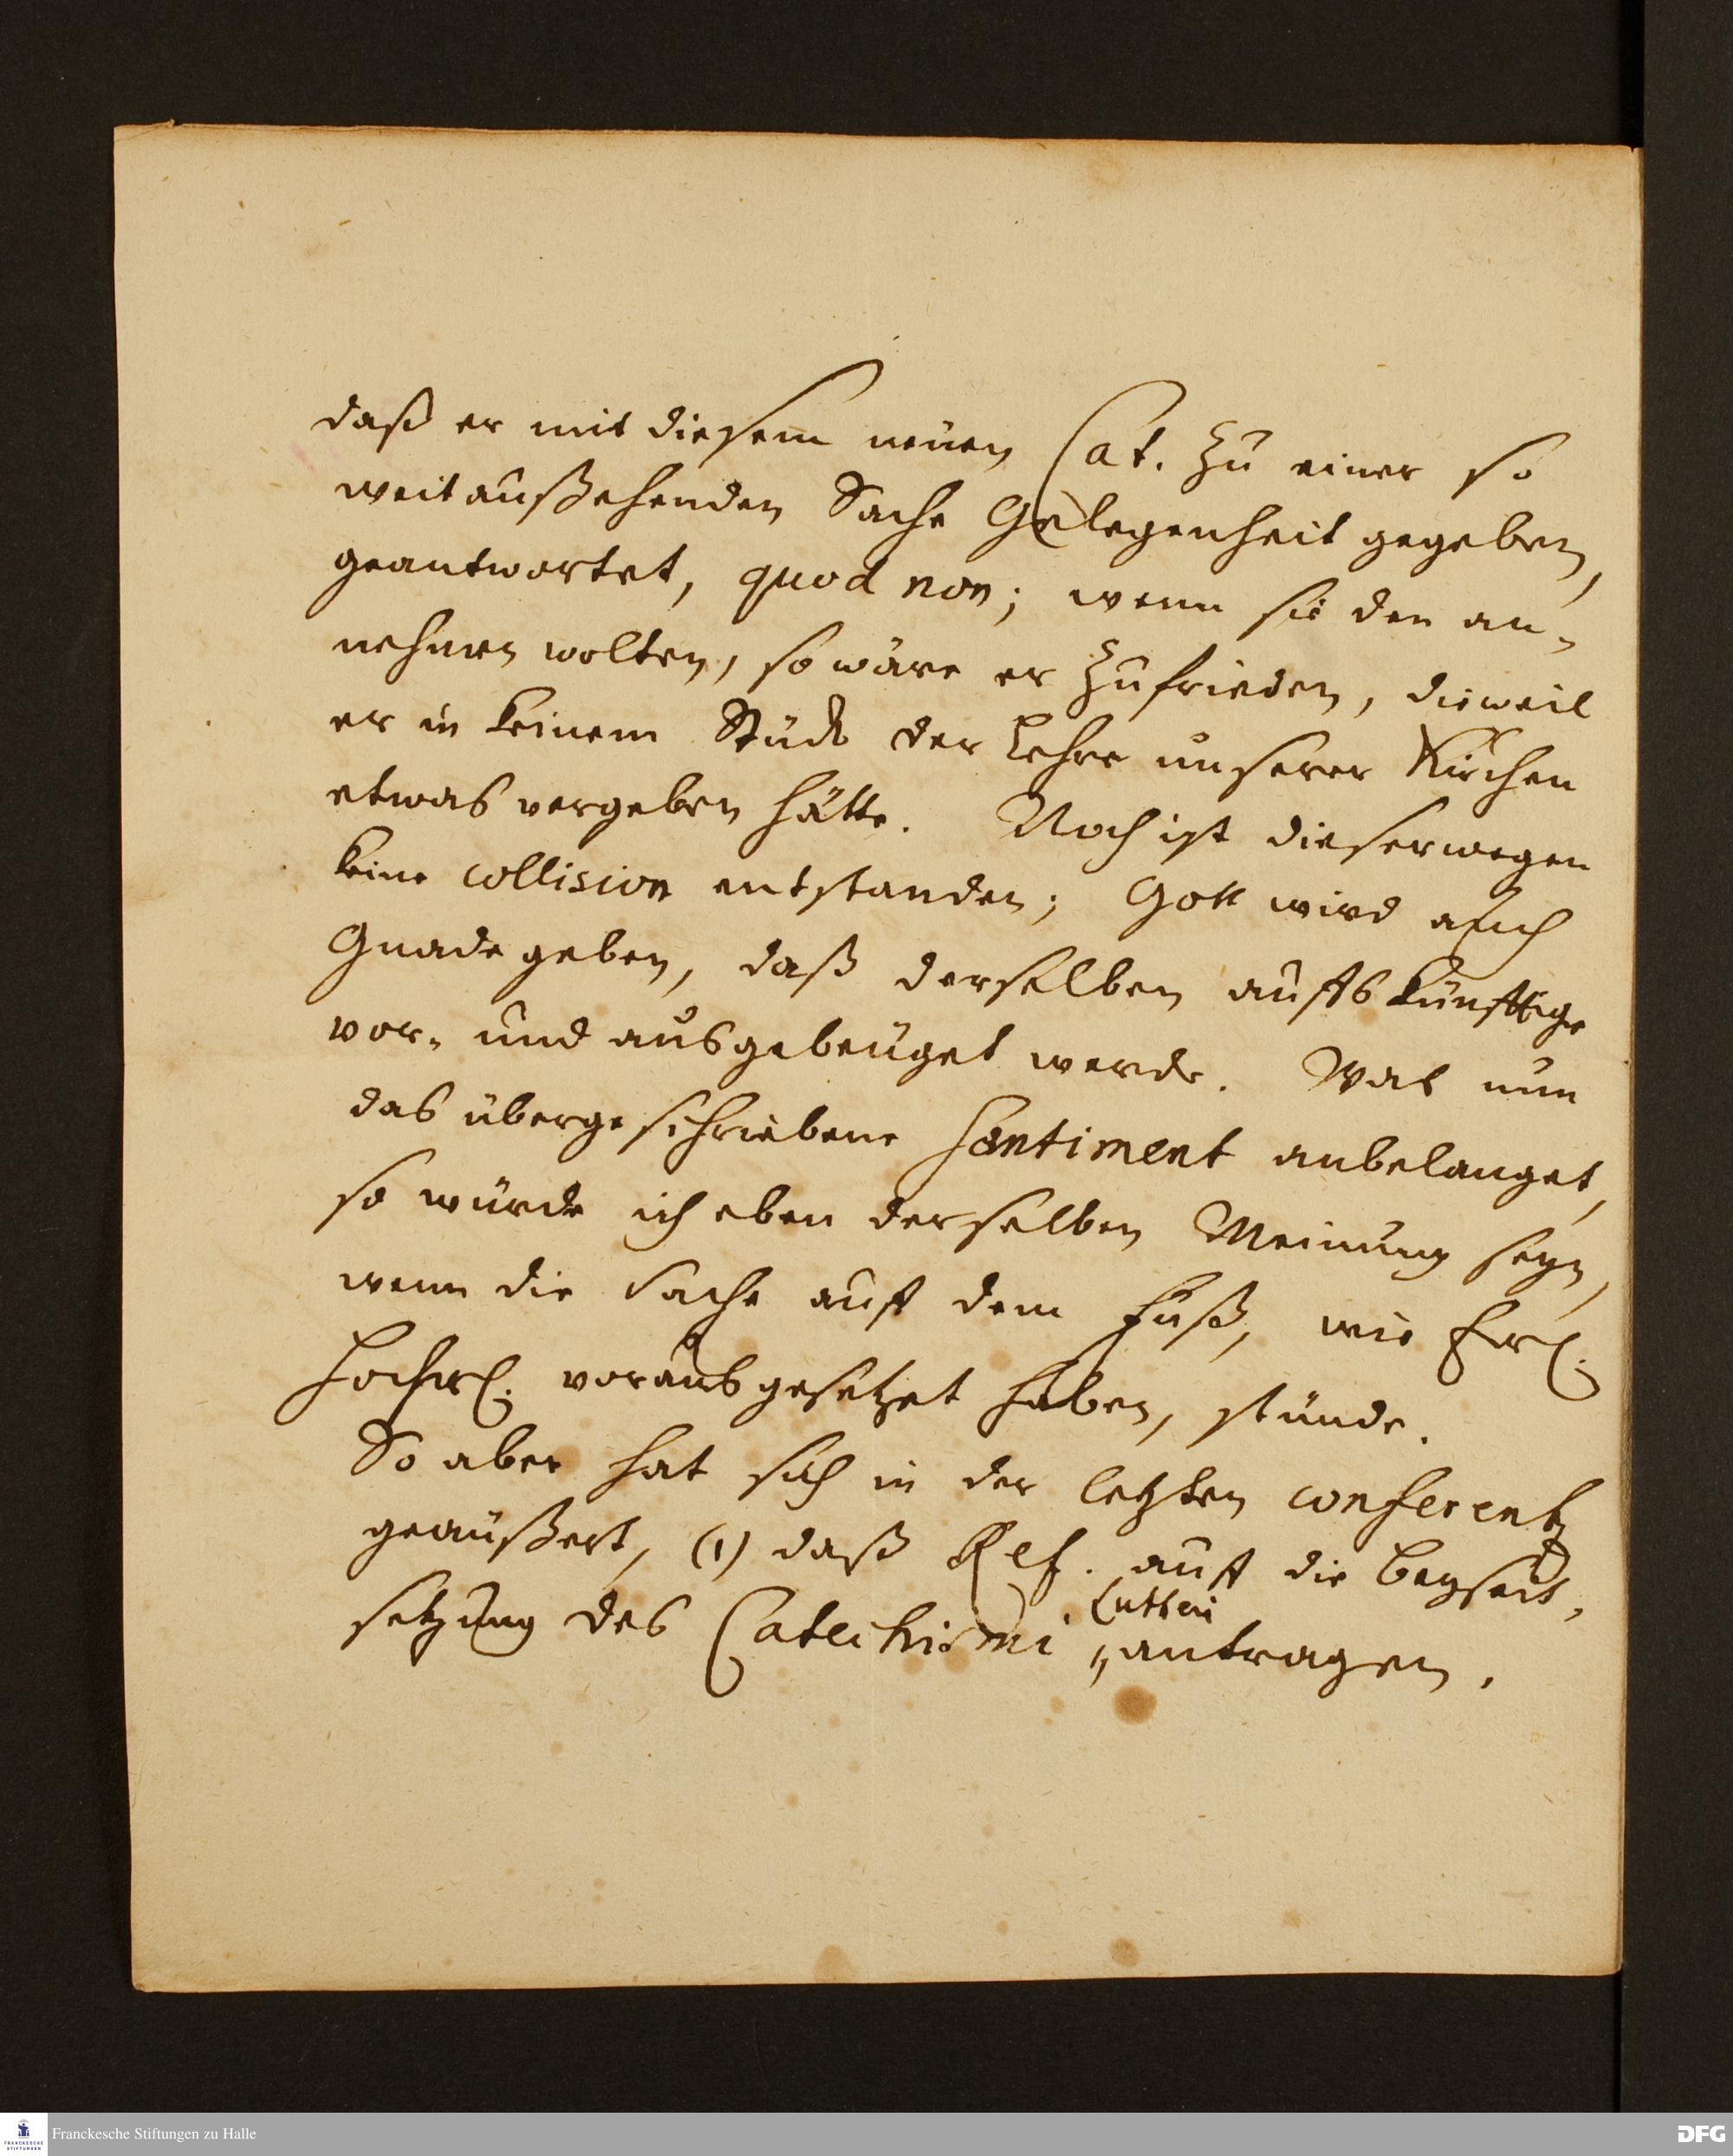 daß er mit diesem neuen Cat. zu einer so
weitaußsehenden Sache Gelegenheit gegeben,
geantwortet, quod non; wenn sie den an-
nehmen wolten, so wäre er zufrieden, dieweil
er in keinem Stück der Lehre unserer Kirchen
etwas vergeben hätte. Noch ist dieserwegen
keine collision entstanden; Gott wird auch
Gnade geben, daß derselben auffs künfftige
vor- und ausgebeuget werde. Was nun
das übergeschriebene Sentiment anbelanget,
so würde ich eben derselben Meinung seyn,
wenn die Sache auff dem Fuß, wie Ew.
Hochw. voraus gesetzet haben, stünde.
So aber hat sich in der letzten conferentz
geäußert, (1) daß Ref. auff die Beyseit-
setzung des Catechismi Lutheri antragen,
Franckesche Stiftungen zu Halle
FRANCKESCHE STIFTUNGEN
DFG